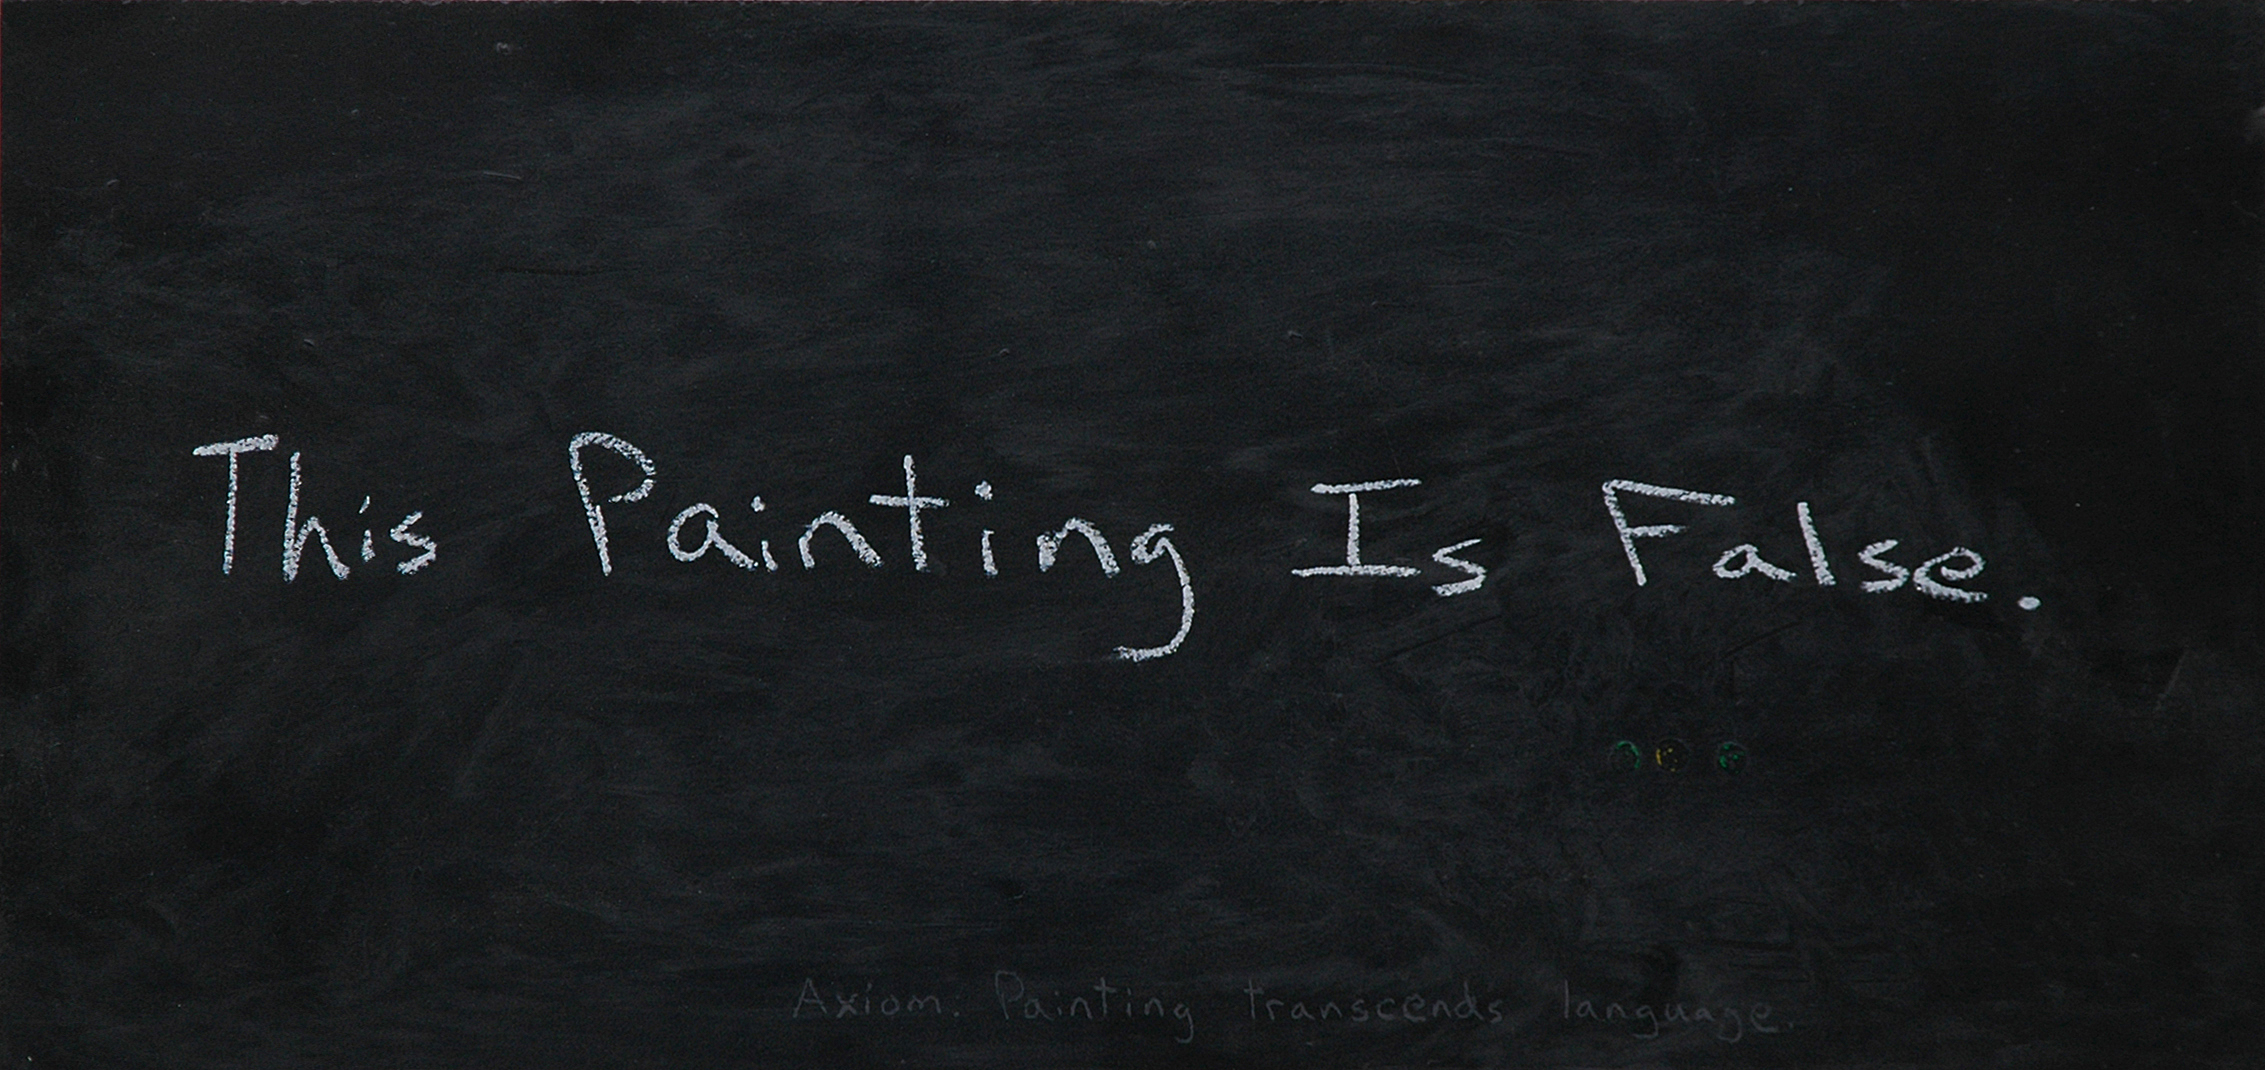 This Painting Is False.
Axiom: Painting transcends language.